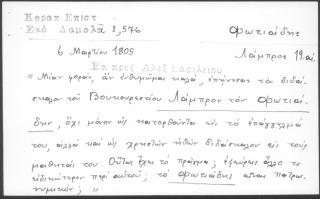 Κοραη Επιστ
Εκδ Δαμαλᾶ 1,576
Φωτιάδης
6 Μαρτίου 1805
Λάμπρος 19.αἰ
Επ προς Αλεξ Βασιλειου
« Μίαν φοράν, ἂν ἐνθυμῶμαι καλά, ἐπῄνεσας τὸν διδά-
σκαλον τοῦ Βουκουρεστίου Λάμπρον τὸν Φωτιά-
δην, ὄχι μόνον ὡς κατορθοῦντα εἰς τὸ ἐπάγγελμά
του, ἀλλὰ καὶ ὡς χρηστῶν ἠθῶν διδάσκαλον εἰς τοὺς
μαθητάς του. Οὕτως ἔχει τὸ πρᾶγμα; ἐξεύρεις ἄλλο τι
εἰδικώτερον περὶ αὐτοῦ; τὸ Φωτιάδης εἶναι πατρω-
νυμικόν; »